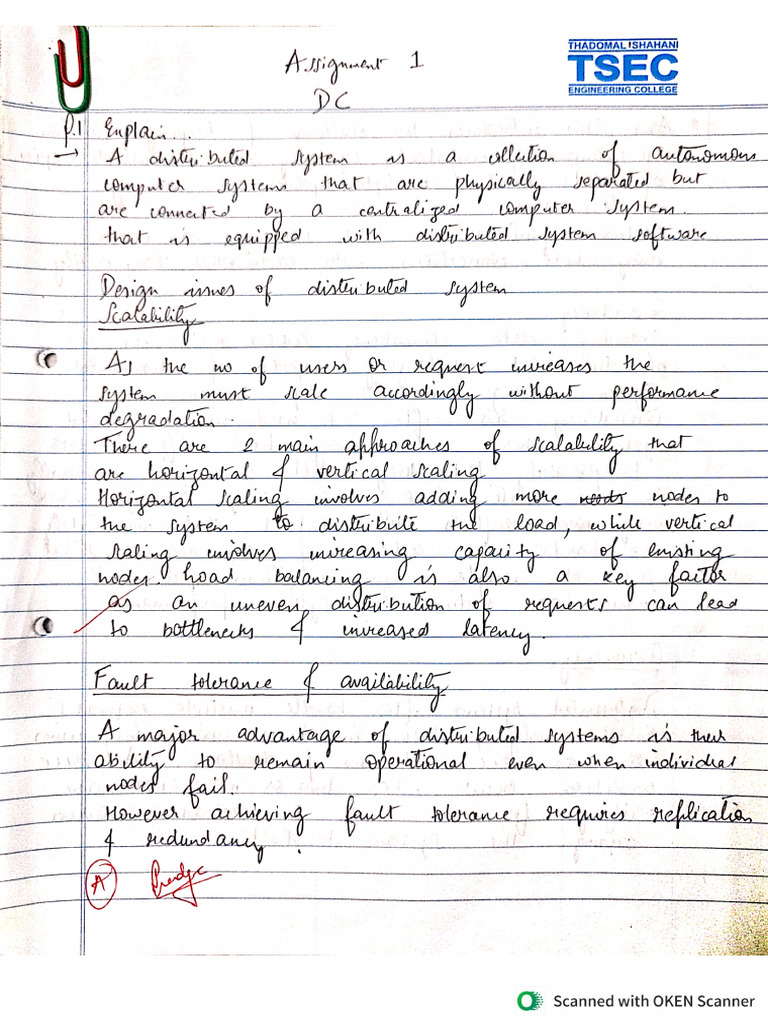 Assignment 1
THADOMAL SHAHANI
TSEC
ENGINEERING COLLEGE
DC
Q.1 Explain...
→ A distributed system is a collection of autonomous
computer systems that are physically separated but
are connected by a centralized computer system.
that is equipped with distributed system software
Design issues of distributed system
Scalability
As the no of users or request increases the
system must scale accordingly without performance
degradation.
There are 2 main approaches of scalability that
are horizontal & vertical scaling
Horizontal scaling involves adding more nodes nodes to
the system to distribute the load, while vertical
scaling involves increasing capacity of existing
nodes. Load balancing is also a key factor
as an uneven distribution of requests can lead
to bottlenecks & increased latency.
Fault tolerance & availability
A major advantage of distributed systems is their
ability to remain operational even when individual
nodes fail.
However achieving fault tolerance requires replication
& redundancy.
A
Scanned with OKEN Scanner